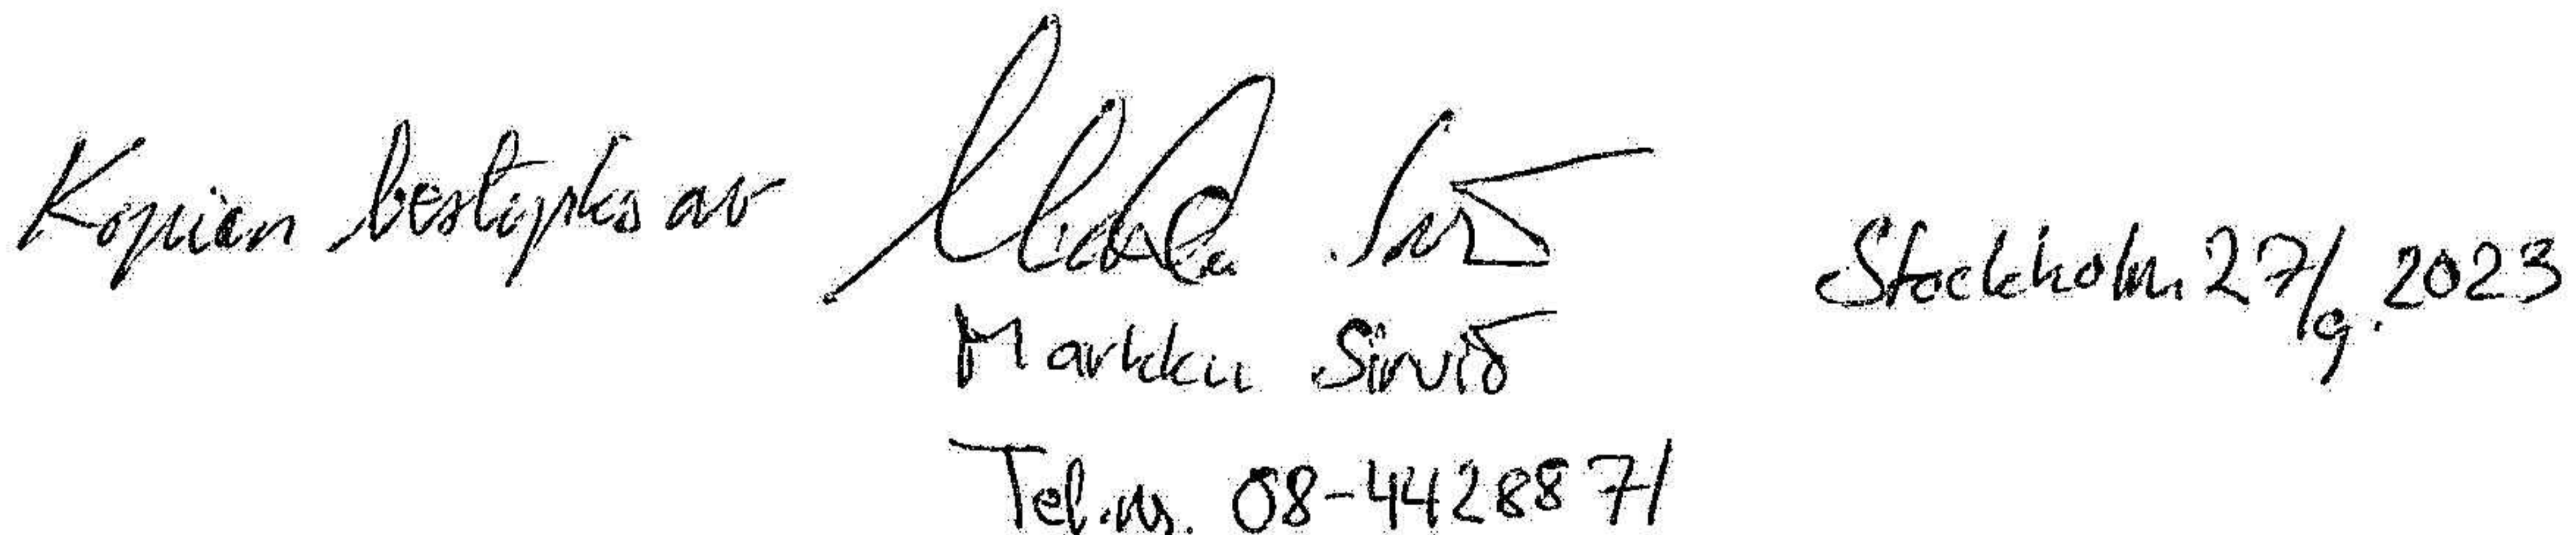 Kopian bestyrks av Markku Sirviö Stockholm 27/9.2023
Markku Sirviö
Tel.nr. 08-4428871